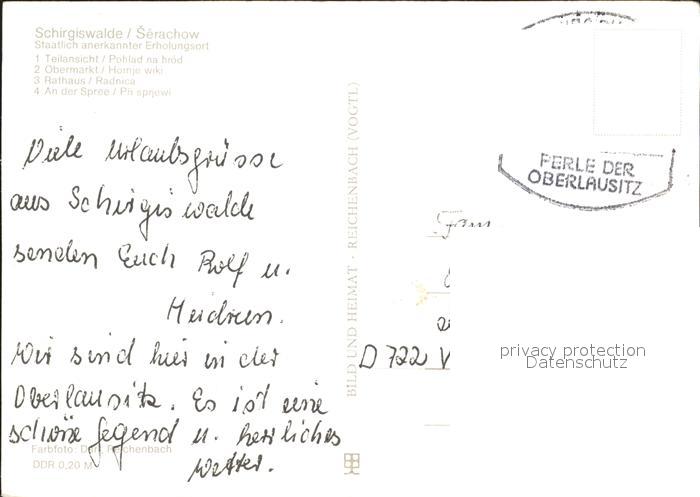 Schirgiswalde / Šěrachow
Staatlich anerkannter Erholungsort
1 Teilansicht / Pohlad na hród
2 Obermarkt / Hornje wiki
3 Rathaus / Radnica
4 An der Spree / Při sprjewi
Viele Urlaubsgrüsse
aus Schirgiswalde
senden Euch Rolf u.
Heidrun.
Wir sind hier in der
Oberlausitz. Es ist eine
schöne Gegend u. herrliches
Wetter.
Farbfoto: Reichenbach
DDR 0,20 M
BILD UND HEIMAT · REICHENBACH (VOGTL)
PERLE DER
OBERLAUSITZ
Fam
D 722 V
privacy protection
Datenschutz